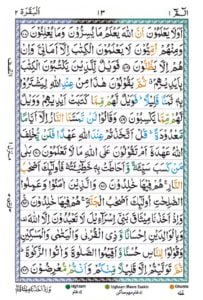 الٓمّٓ ١ ١٣ الْبَقَرَة ٢
اَوَلَا يَعْلَمُوْنَ اَنَّ اللّٰهَ يَعْلَمُ مَا يُسِرُّوْنَ وَمَا يُعْلِنُوْنَ
وَمِنْهُمْ اُمِّيُّوْنَ لَا يَعْلَمُوْنَ الْكِتٰبَ اِلَّاۤ اَمَانِيَّ وَاِنْ
هُمْ اِلَّا يَظُنُّوْنَ فَوَيْلٌ لِّلَّذِيْنَ يَكْتُبُوْنَ الْكِتٰبَ
بِاَيْدِيْهِمْ ثُمَّ يَقُوْلُوْنَ هٰذَا مِنْ عِنْدِ اللّٰهِ لِيَشْتَرُوْا
بِهٖ ثَمَنًا قَلِيْلًا فَوَيْلٌ لَّهُمْ مِّمَّا كَتَبَتْ اَيْدِيْهِمْ وَوَيْلٌ
لَّهُمْ مِّمَّا يَكْسِبُوْنَ وَقَالُوْا لَنْ تَمَسَّنَا النَّارُ اِلَّاۤ اَيَّامًا
مَّعْدُوْدَةً قُلْ اَتَّخَذْتُمْ عِنْدَ اللّٰهِ عَهْدًا فَلَنْ يُّخْلِفَ
اللّٰهُ عَهْدَهٗۤ اَمْ تَقُوْلُوْنَ عَلَى اللّٰهِ مَا لَا تَعْلَمُوْنَ بَلٰى
مَنْ كَسَبَ سَيِّئَةً وَّاَحَاطَتْ بِهٖ خَطِيْٓئَتُهٗ فَاُولٰٓئِكَ اَصْحٰبُ
النَّارِ هُمْ فِيْهَا خٰلِدُوْنَ وَالَّذِيْنَ اٰمَنُوْا وَعَمِلُوا
الصّٰلِحٰتِ اُولٰٓئِكَ اَصْحٰبُ الْجَنَّةِ هُمْ فِيْهَا خٰلِدُوْنَ
وَاِذْ اَخَذْنَا مِيْثَاقَ بَنِيْٓ اِسْرَآءِيْلَ لَا تَعْبُدُوْنَ اِلَّا اللّٰهَ
وَبِالْوَالِدَيْنِ اِحْسَانًا وَّذِي الْقُرْبٰى وَالْيَتٰمٰى وَالْمَسٰكِيْنِ
وَقُوْلُوْا لِلنَّاسِ حُسْنًا وَّاَقِيْمُوا الصَّلٰوةَ وَاٰتُوا الزَّكٰوةَ
ثُمَّ تَوَلَّيْتُمْ اِلَّا قَلِيْلًا مِّنْكُمْ وَاَنْتُمْ مُّعْرِضُوْنَ